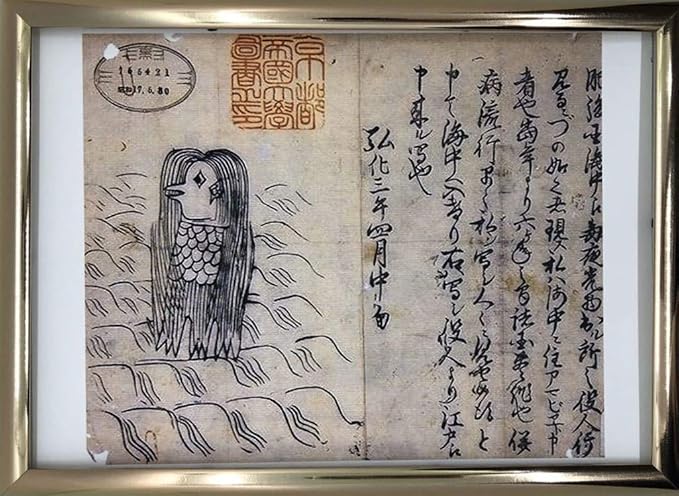 京都
帝國大學
圖書之印
肥後国海中え毎夜光物出ル所之役人行
見るニづの如く者現ス私ハ海中ニ住アマビヱト申
者也当年より六ケ年之間諸国豊作也併
病流行早々私シ写シ人々ニ見セ候得と
申て海中へ入けり右ハ写シ役人より江戸え
申来ル写也
弘化三年四月中旬